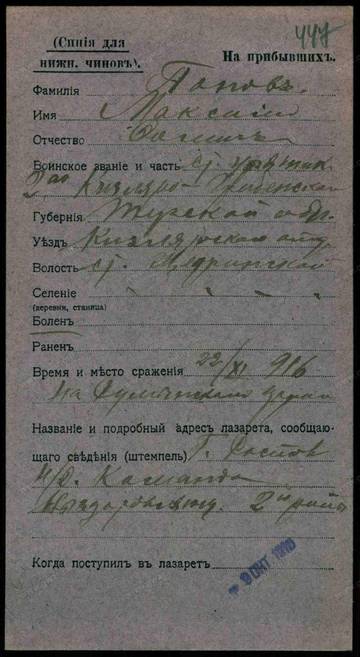 447
(Синія для
нижн. чиновъ).
На прибывшихъ.
Фамилія Поповъ.
Имя Максимъ
Отчество
Воинское званіе и часть ст. урядник
2го Кизляро-Гребенскаго
Губернія Терской обл.
Уѣздъ Кизлярскаго отд.
Волость ст. Щедринской
Селеніе
(деревня, станица)
Боленъ
Раненъ
Время и мѣсто сраженія 22/XI 916
на
Названіе и подробный адресъ лазарета, сообщаю-
щаго свѣдѣнія (штемпель) Г. Ростов
н/Д. Команда
Выздоравлив. 2й рота
Когда поступилъ въ лазаретъ